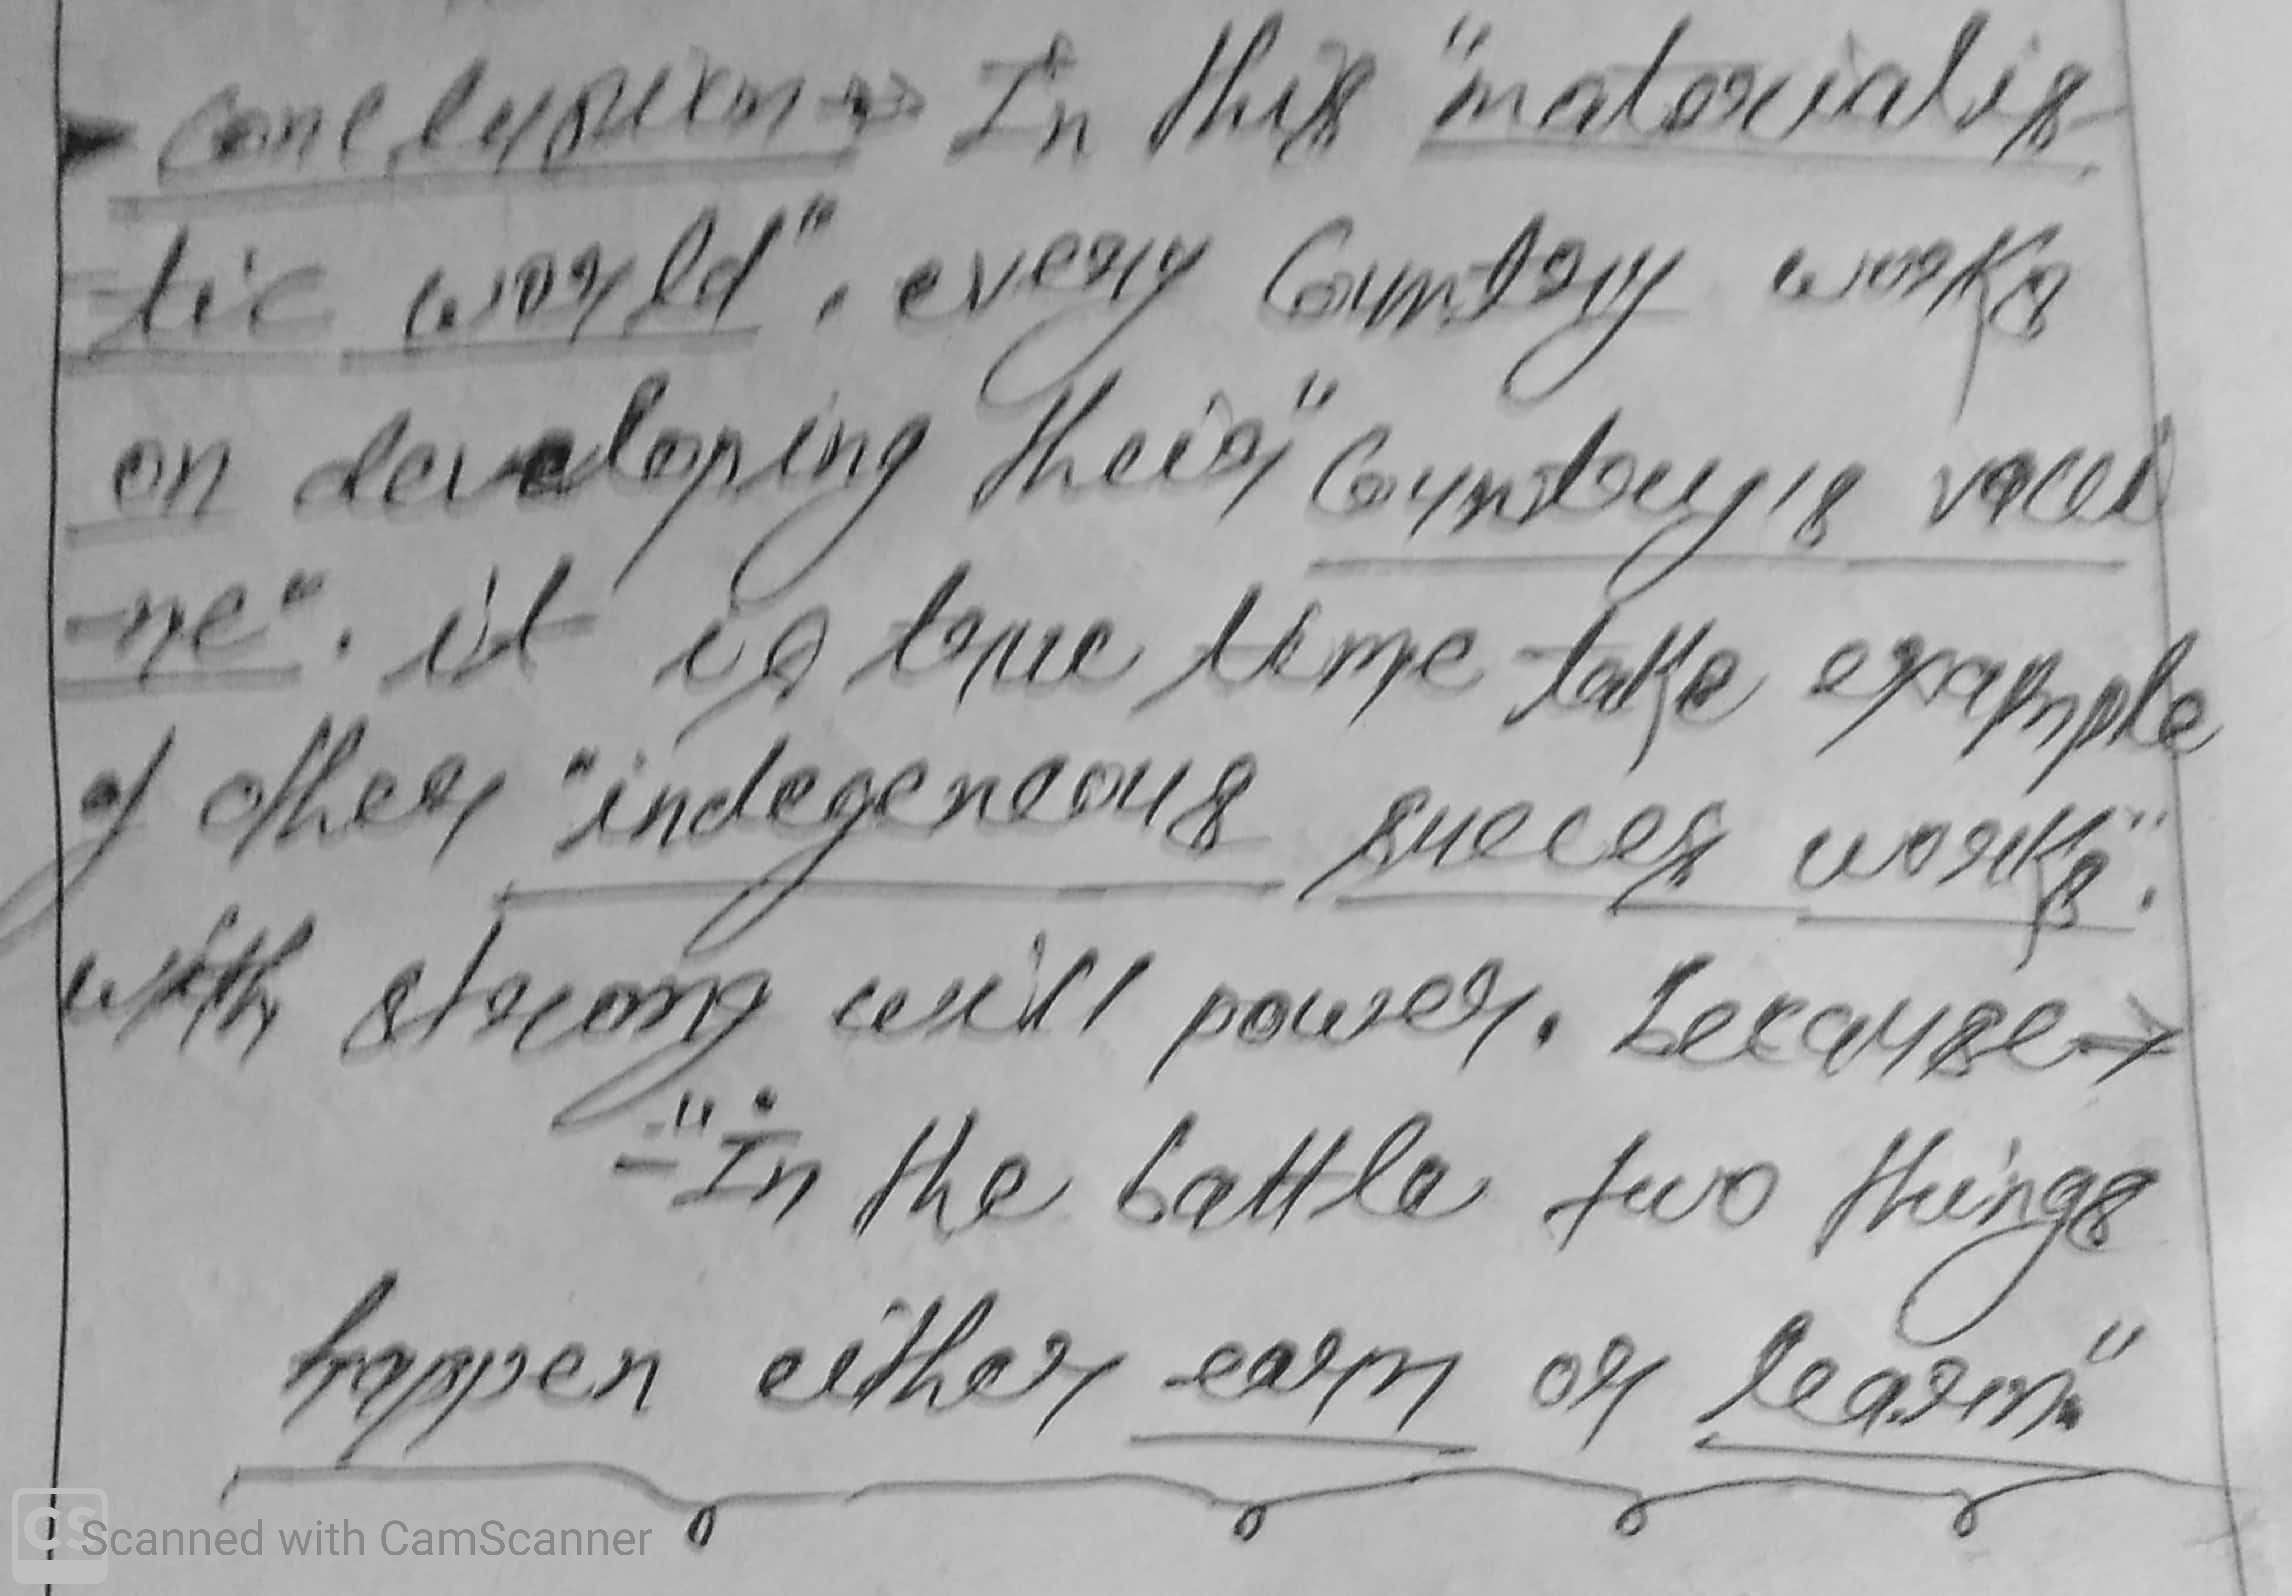 conclusion → In this "materialis
tic world", every Country works
on developing their "Country's vacci
-ne". it is true time take example
of other "indegeneous succes works".
with strong will power. because →
- "In the battle two things
happen either earn or learn."
CS Scanned with CamScanner